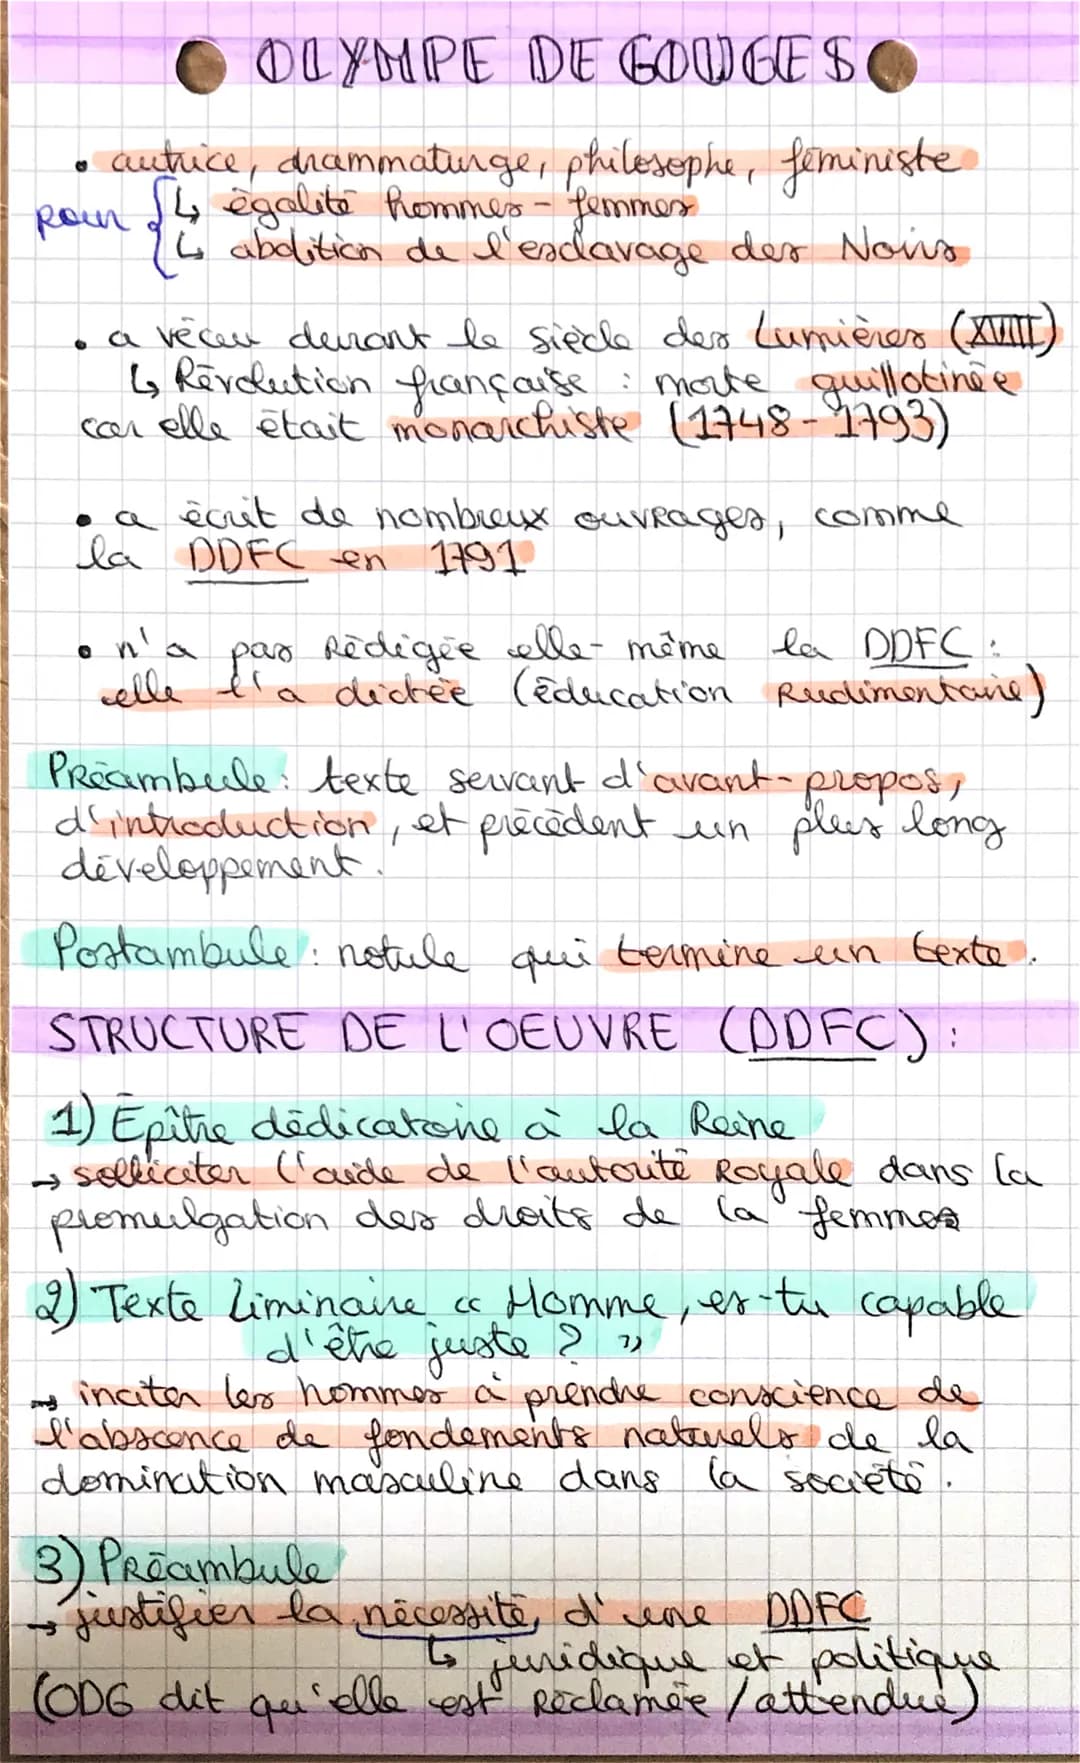 OLYMPE DE GOUGES
• autrice, drammaturge, philosophe, féministe
pour { ↳ égalité hommes - femmes
↳ abolition de l'esclavage des Noirs
• a vécu durant le siècle des Lumières (XVIII)
↳ Révolution française : morte guillotinée
car elle était monarchiste (1748-1793)
• a écrit de nombreux ouvrages, comme
la DDFC en 1791
• n'a pas rédigée elle-même la DDFC :
elle l'a dictée (éducation rudimentaire)
Préambule : texte servant d'avant-propos,
d'introduction, et précédent un plus long
développement.
Postambule : notule qui termine un texte.
STRUCTURE DE L'OEUVRE (DDFC) :
1) Épître dédicatoire à la Reine
→ solliciter l'aide de l'autorité Royale dans la
promulgation des droits de la femmes
2) Texte liminaire « Homme, es-tu capable
d'être juste ? »
→ inciter les hommes à prendre conscience de
l'abscence de fondements naturels de la
domination masculine dans la société.
3) Préambule
→ justifier la nécessité d'une DDFC
↳ juridique et politique
(ODG dit qu'elle est réclamée / attendue)